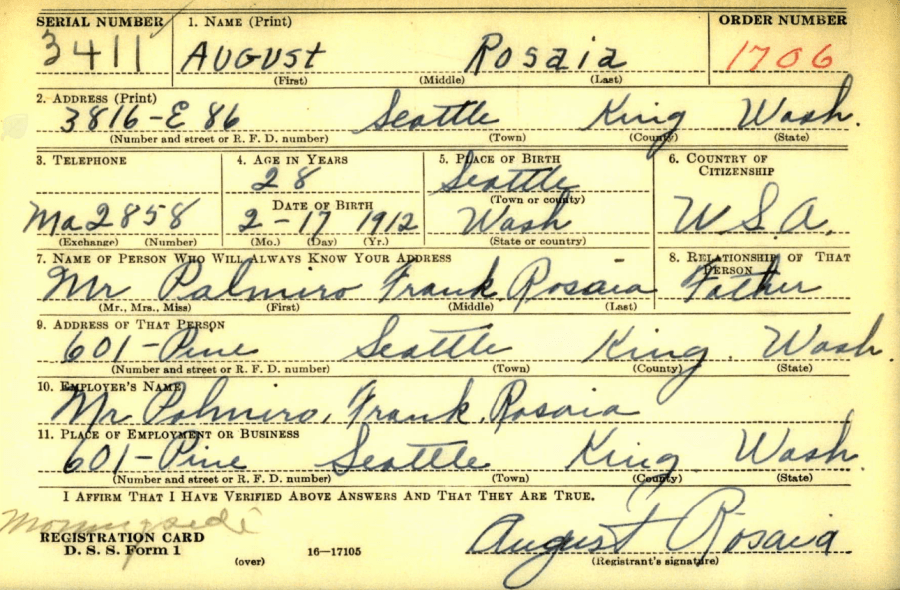 SERIAL NUMBER 1. NAME (Print) ORDER NUMBER
3411 AUGUST ROSAIA 1706
(First) (Middle) (Last)
2. ADDRESS (Print)
3816-E 86 Seattle King Wash.
(Number and street or R. F. D. number) (Town) (County) (State)
3. TELEPHONE 4. AGE IN YEARS 5. PLACE OF BIRTH 6. COUNTRY OF CITIZENSHIP
28 Seattle
(Town or county)
DATE OF BIRTH
Ma 2858 2-17 1912 Wash U.S.A.
(Exchange) (Number) (Mo.) (Day) (Yr.) (State or country)
7. NAME OF PERSON WHO WILL ALWAYS KNOW YOUR ADDRESS 8. RELATIONSHIP OF THAT PERSON
Mr Palmiro Frank Rosaia Father
(Mr., Mrs., Miss) (First) (Middle) (Last)
9. ADDRESS OF THAT PERSON
601-Pine Seattle King. Wash.
(Number and street or R. F. D. number) (Town) (County) (State)
10. EMPLOYER'S NAME
Mr Palmiro, Frank. Rosaia
11. PLACE OF EMPLOYMENT OR BUSINESS
601-Pine Seattle King Wash.
(Number and street or R. F. D. number) (Town) (County) (State)
I AFFIRM THAT I HAVE VERIFIED ABOVE ANSWERS AND THAT THEY ARE TRUE.
Morningside
REGISTRATION CARD August Rosaia.
D. S. S. Form 1 (over) 16-17105 (Registrant's signature)